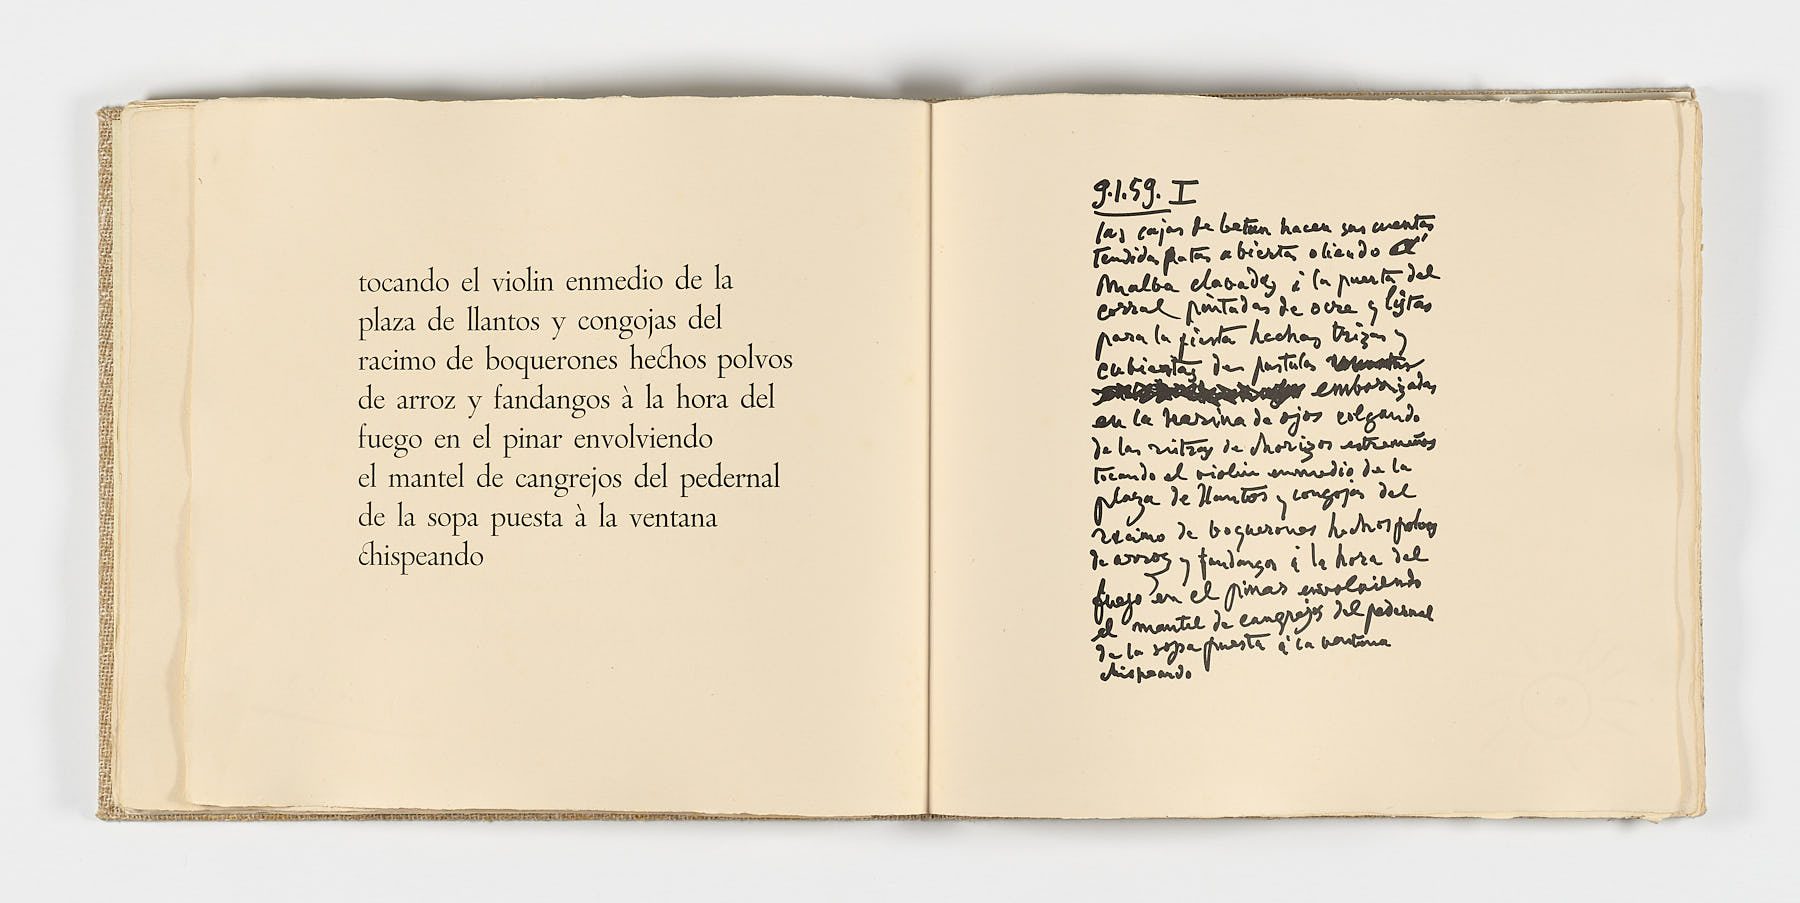 tocando el violin enmedio de la
plaza de llantos y congojas del
racimo de boquerones hechos polvos
de arroz y fandangos à la hora del
fuego en el pinar envolviendo
el mantel de cangrejos del pedernal
de la sopa puesta à la ventana
chispeando
9.1.59. I
las cajas de betun hacen sus cuentas
tendidas patas abierta oliendo a
malva clavadas à la puerta del
corral pintadas de ocre y listas
para la fiesta hechas trizas y
cubiertas de pustulas
emborrizadas
en la harina de ojos colgando
de las ristras de chorizos estremeños
tocando el violin enmedio de la
plaza de llantos y congojas del
racimo de boquerones hechos polvos
de arroz y fandangos à la hora del
fuego en el pinar envolviendo
el mantel de cangrejos del pedernal
de la sopa puesta à la ventana
chispeando